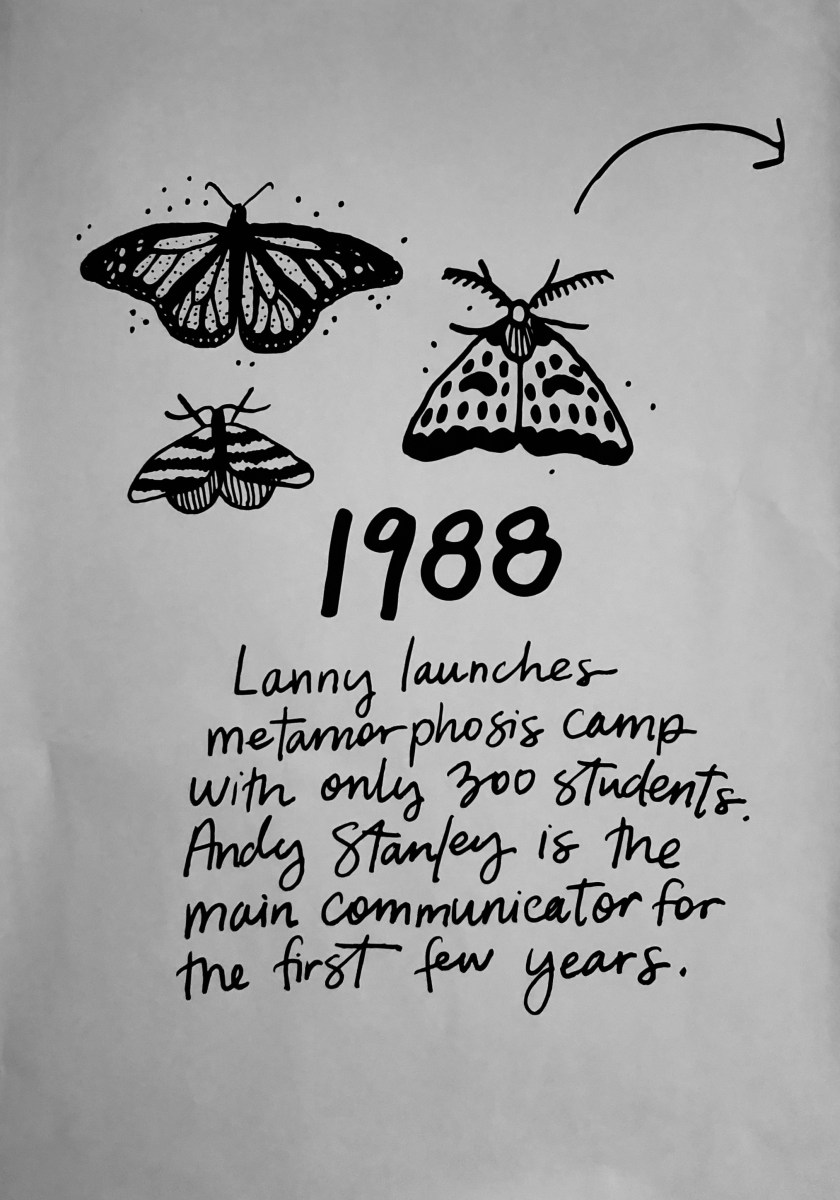 1988
Lanny launches
metamorphosis camp
with only 300 students.
Andy Stanley is the
main communicator for
the first few years.